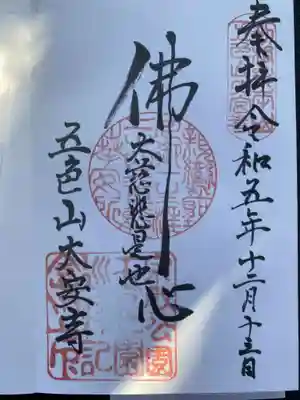 奉拝 令和五年十二月十三日
佛心
大慈悲是也
五色山大安寺